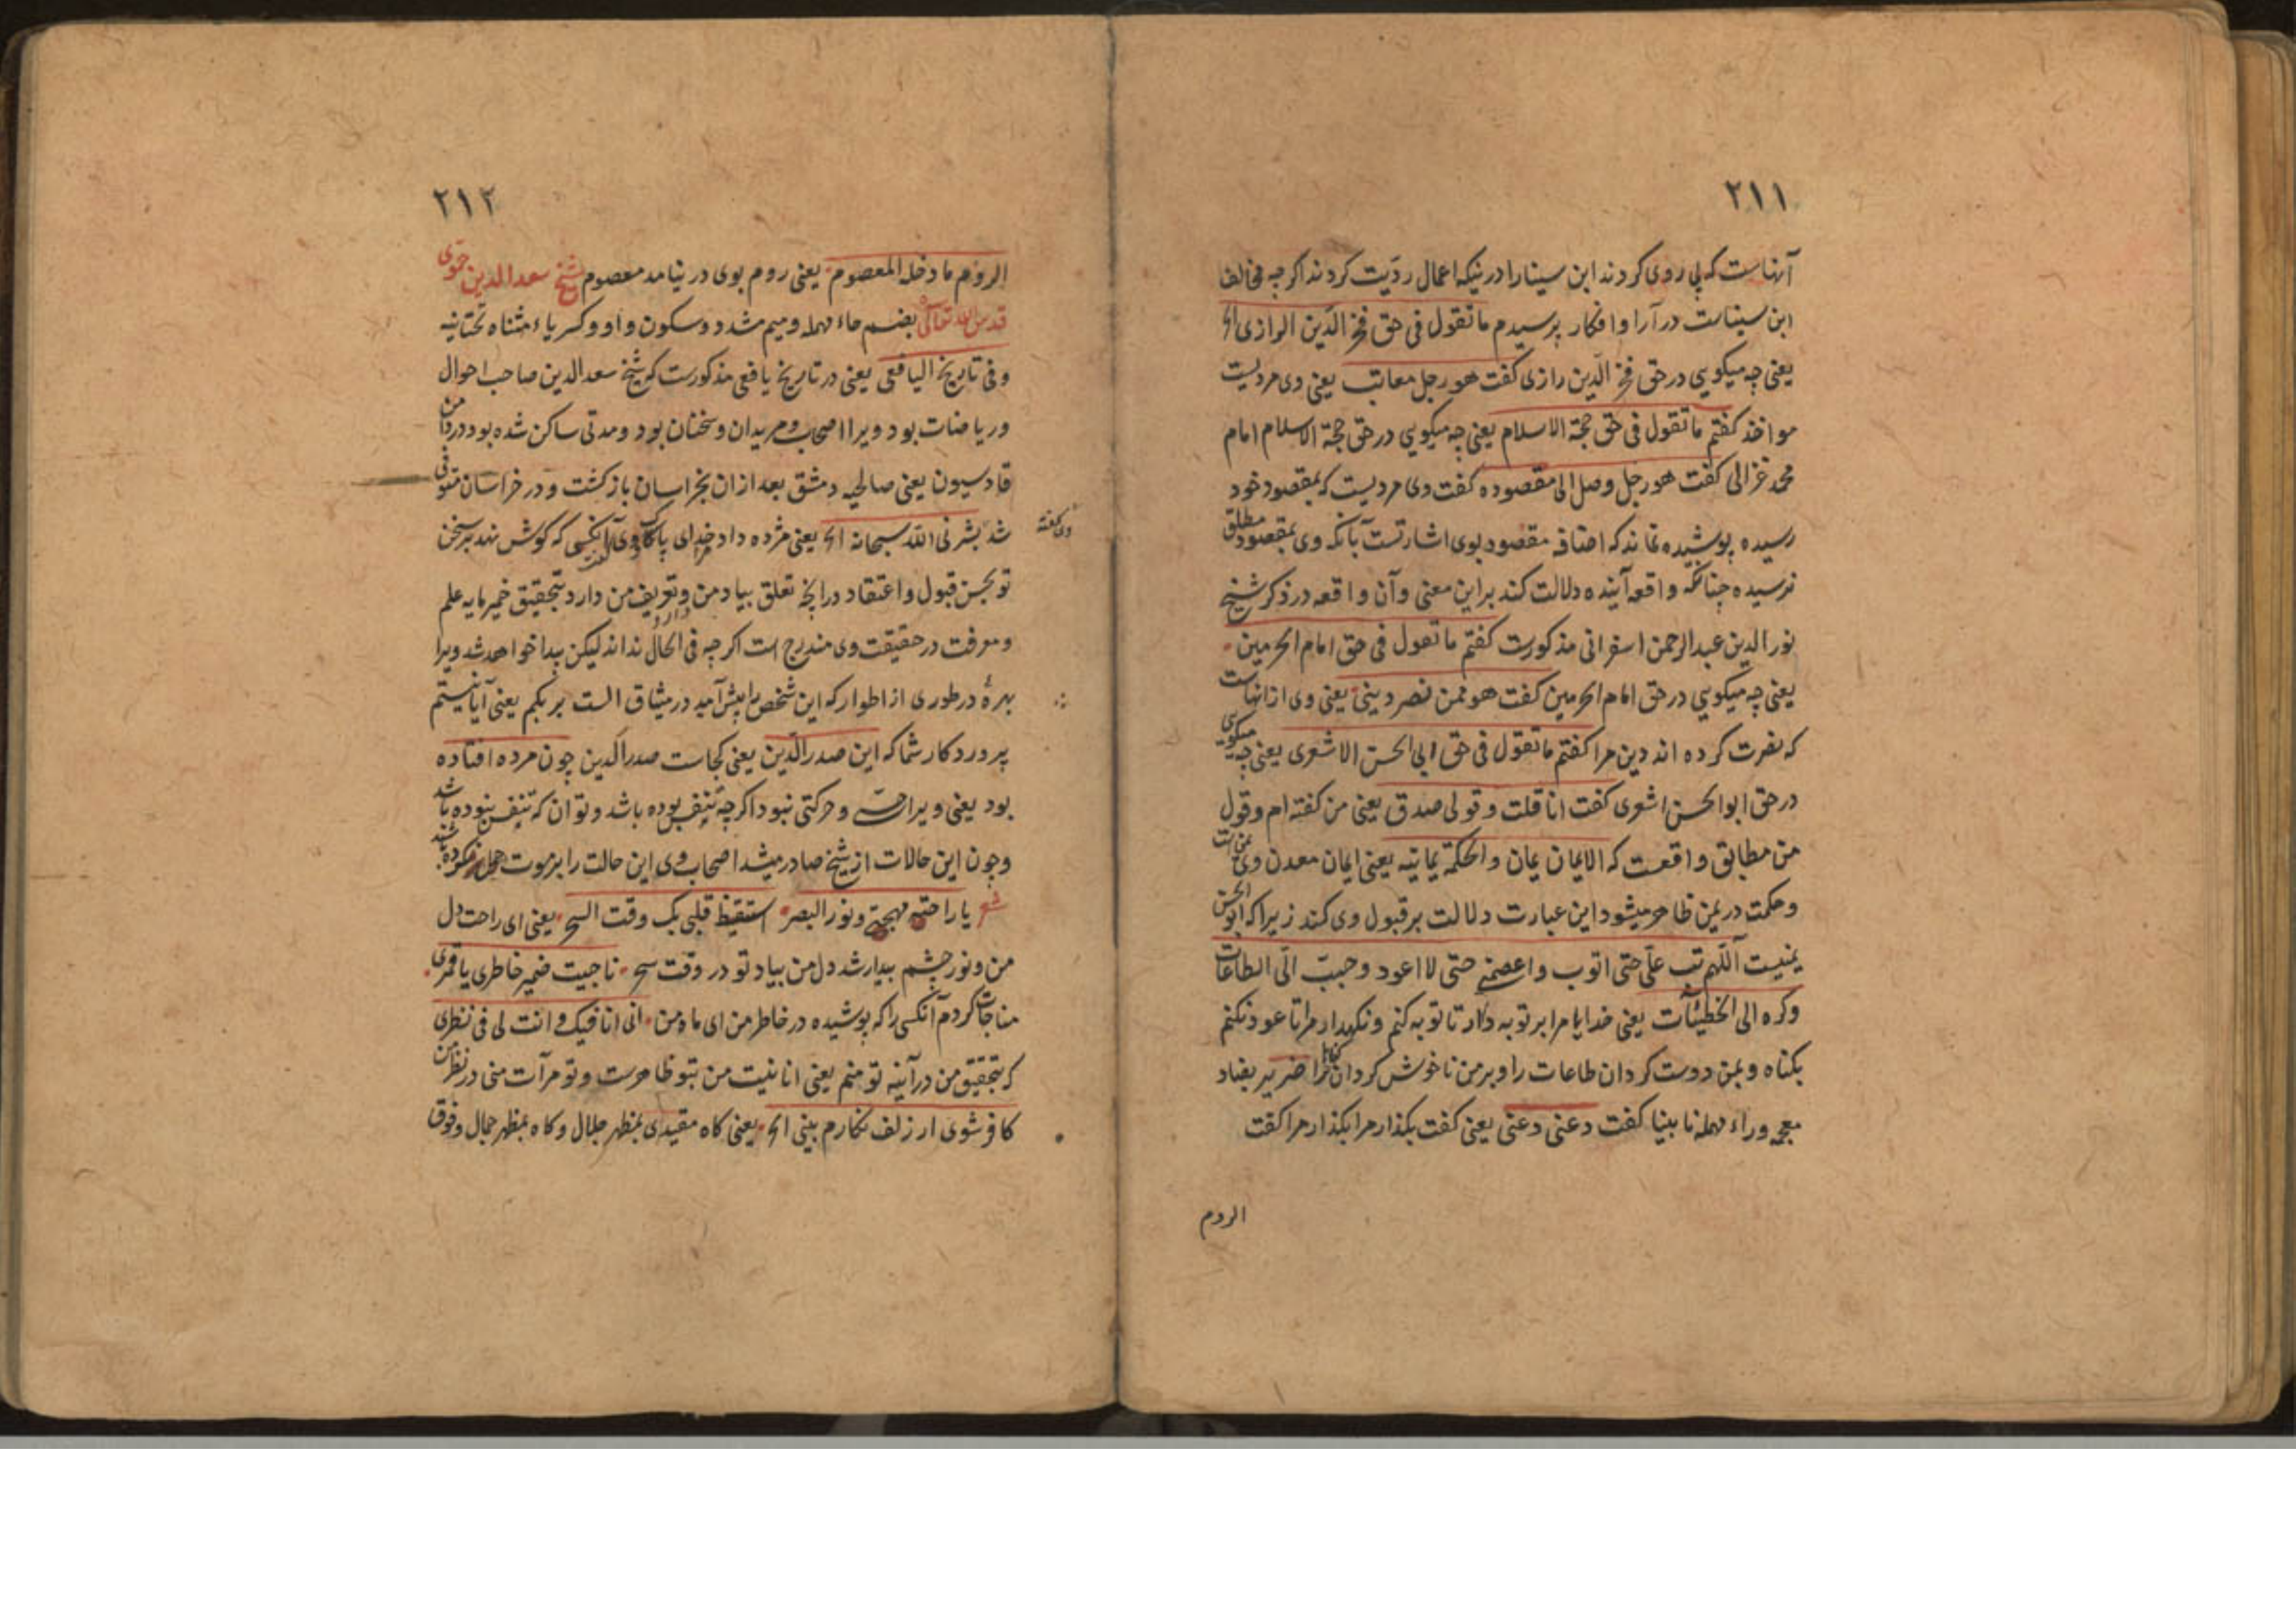 ۲۱۱
آنهاست که پی روی کردند ابن سینا را در نیکه اعمال ردّیت کردند اکرچه مخالف
ابن سیناست در آرا و افکار پرسیدم ما تقول فی حق فخر الدّین الرازی الخ
یعنی چه میکویی در حق فخر الدّین رازی کفت هو رجل معاتب یعنی وی مردیست
مواخذ کفتم ما تقول فی حق حجة الاسلام یعنی چه میکویی در حق حجة الاسلام امام
محمد غزالی کفت هو رجل وصل الی مقصوده کفت وی مردیست که بمقصود خود
رسیده پوشیده نماند که اضافه مقصود بوی اشارتست بآنکه وی بمقصود مطلق
نرسیده چنانکه واقعه آینده دلالت کند براین معنی وآن واقعه در ذکر شیخ
نور الدین عبد الرحمن اسفراینی مذکورست کفتم ما تقول فی حق امام الحرمین
یعنی چه میکویی در حق امام الحرمین کفت هو ممن نصر دینی یعنی وی از انهاست
که نصرت کرده اند دین مرا کفتم ما تقول فی حق ابی الحسن الاشعری یعنی چه میکویی
در حق ابو الحسن اشعری کفت انا قلت و قولی صدق یعنی من کفته ام وقول
من مطابق واقعست که الایمان یمان والحکمة یمانیه یعنی ایمان معدن وی یمن است
وحکمت در یمن ظاهر میشود این عبارت دلالت بر قبول وی کند زیرا که ابو الحسن
یمنیست اللّهم تب علیّ حتی اتوب واعصمنی حتی لا اعود وحبب الیّ الطاعات
وکره الی الخطیئات یعنی خدایا مرا بر توبه دار تا توبه کنم ونکهدار مرا تا عود نکنم
بکناه وبمن دوست کردان طاعات را وبر من ناخوش کردان کناهان را ضریر بضاد
معجمه وراء مهمله نابینا کفت دعنی دعنی یعنی کفت بکذار مرا بکذار مرا کفت
الروم
۲۱۲
الروم ما دخله المعصوم یعنی روم بوی در نیامد معصوم شیخ سعد الدین حمّوی
قدس الله تعالی بضم حاء مهمله ومیم مشدد وسکون واو وکسر یاء مثناه تحتانیه
وفی تاریخ الیافعی یعنی در تاریخ یافعی مذکورست که شیخ سعد الدین صاحب احوال
وریاضات بود ویرا اصحاب ومریدان وسخنان بود ومدتی ساکن شده بود در دامن
قادسیون یعنی صالحیه دمشق بعد ازان بخراسان بازکشت ودر خراسان متوفی
شد بشرنی الله سبحانه الخ یعنی مژده داد خدای پاک مرا آنکسی که کوش نهد بر سخن
وی کفته
تو بحسن قبول واعتقاد در انچه تعلق بیاد من وتعریف من دارد بتحقیق خمیر مایه علم
ومعرفت در حقیقت وی مندرج است اکرچه فی الحال نداند لیکن پیدا خواهد شد ویرا
بهرهٔ در طوری از اطوار که این شخص را پیش آمد در میثاق الست بربکم یعنی آیا نیستم
پروردکار شما که این صدر الدّین یعنی کجاست صدر الدین چون مرده افتاده
بود یعنی ویرا حسّ وحرکتی نبود اکرچه تنفس بوده باشد وتوان که تنفس نبوده باشد
وچون این حالات از شیخ صادر میشد اصحاب وی این حالت را بر موت حمل کرده باشند
شعر یا راحتی مهجتی ونور البصر استیقظ قلبی بک وقت السحر یعنی ای راحت دل
من ونور چشم بیدار شد دل من بیاد تو در وقت سحر ناجیت ضمیر خاطری یا قمری
مناجات کردم آنکسی را که پوشیده در خاطر من ای ماه من انی انا فیک وانت لی فی نظری
که بتحقیق من در آینه تو منم یعنی انانیت من بتو ظاهرست وتو مرآت منی در نظر من
کافر شوی ار زلف نکارم بینی الخ یعنی کاه مقیدی بمظهر جلال وکاه بمظهر جمال وفوق